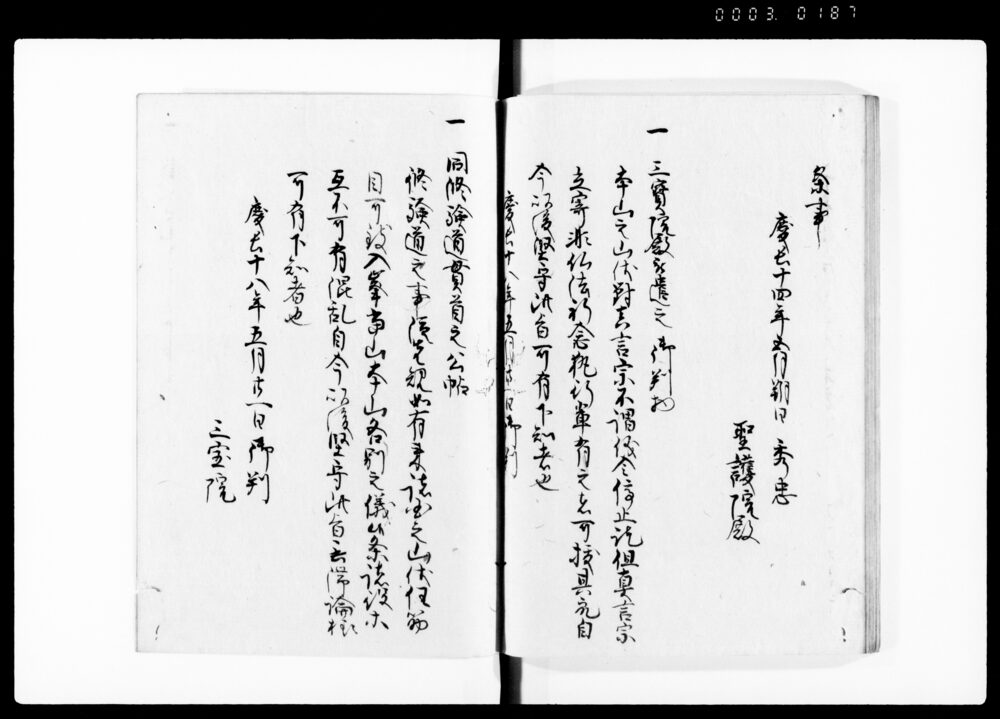 0003. 0187
条事
慶長十四年五月朔日 秀忠
聖護院殿
一 三寶院殿被遣之御判物
本山之山伏対真言宗不謂役令停止訖但真言宗
立寄非仏法祈念執行輩有之者可授其充自
今以後堅守此旨可有下知者也
慶長十八年五月廿一日御判
一 同修験道貫首之公帖
修験道之事従先規如有来諸国之山伏任筋
目可致入峯当山本山各別之儀候条諸役等
互不可有混乱自今以後堅守此旨無諍論様
可有下知者也
慶長十八年五月廿一日御判
三宝院